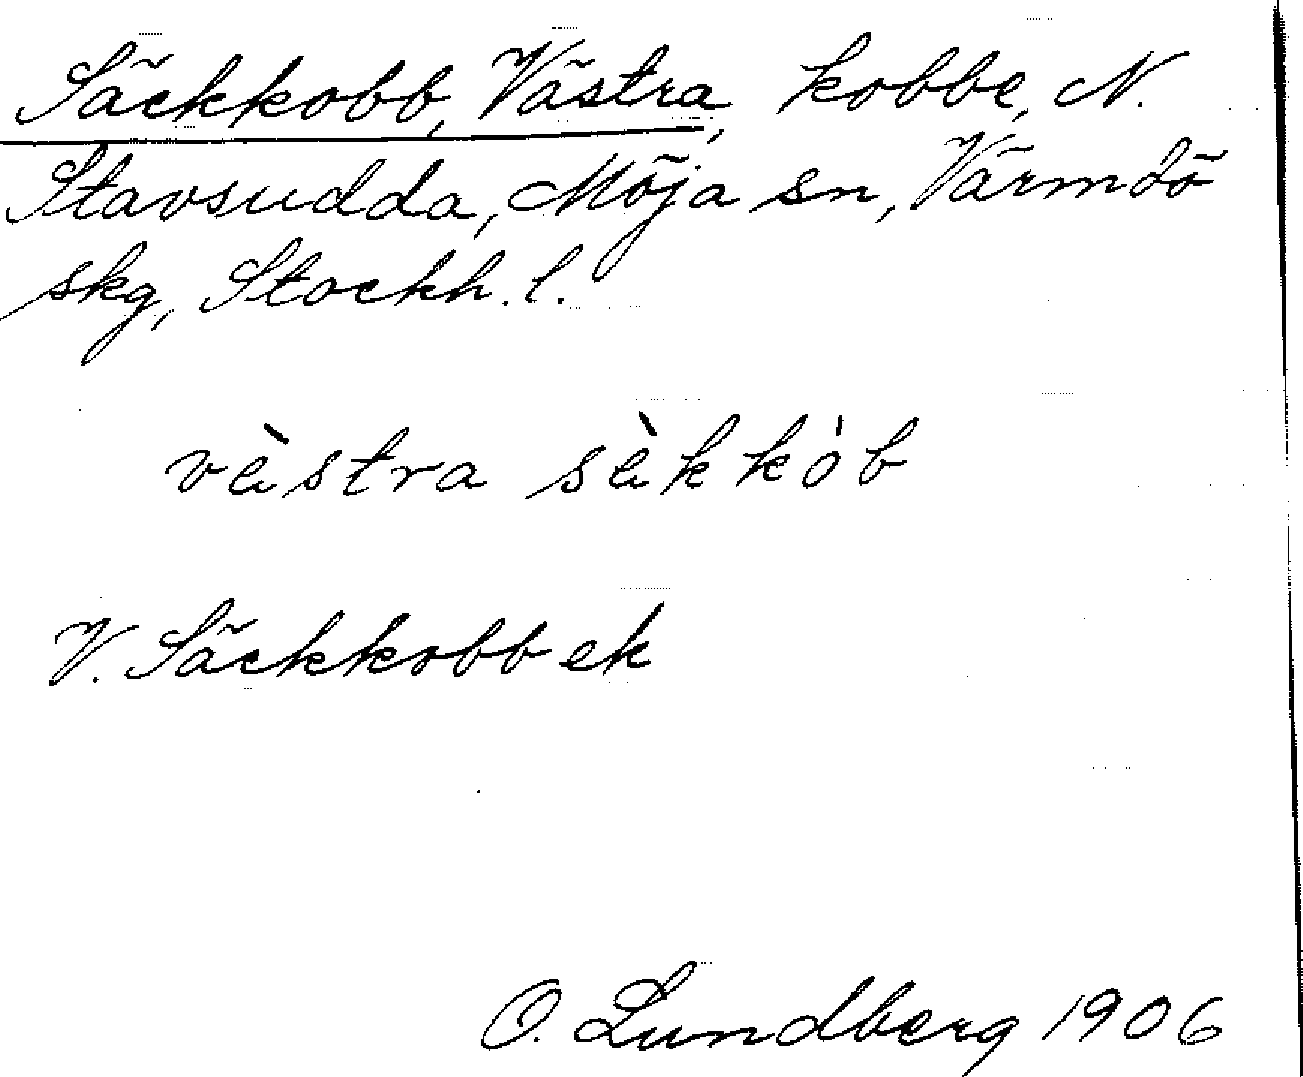 Säckkobb, Västra, kobbe, N.
Stavsudda, Möja sn, Värmdö
skg, Stockh. l.
vàstra sàkkob
V. Säckkobb ek
O. Lundberg 1906